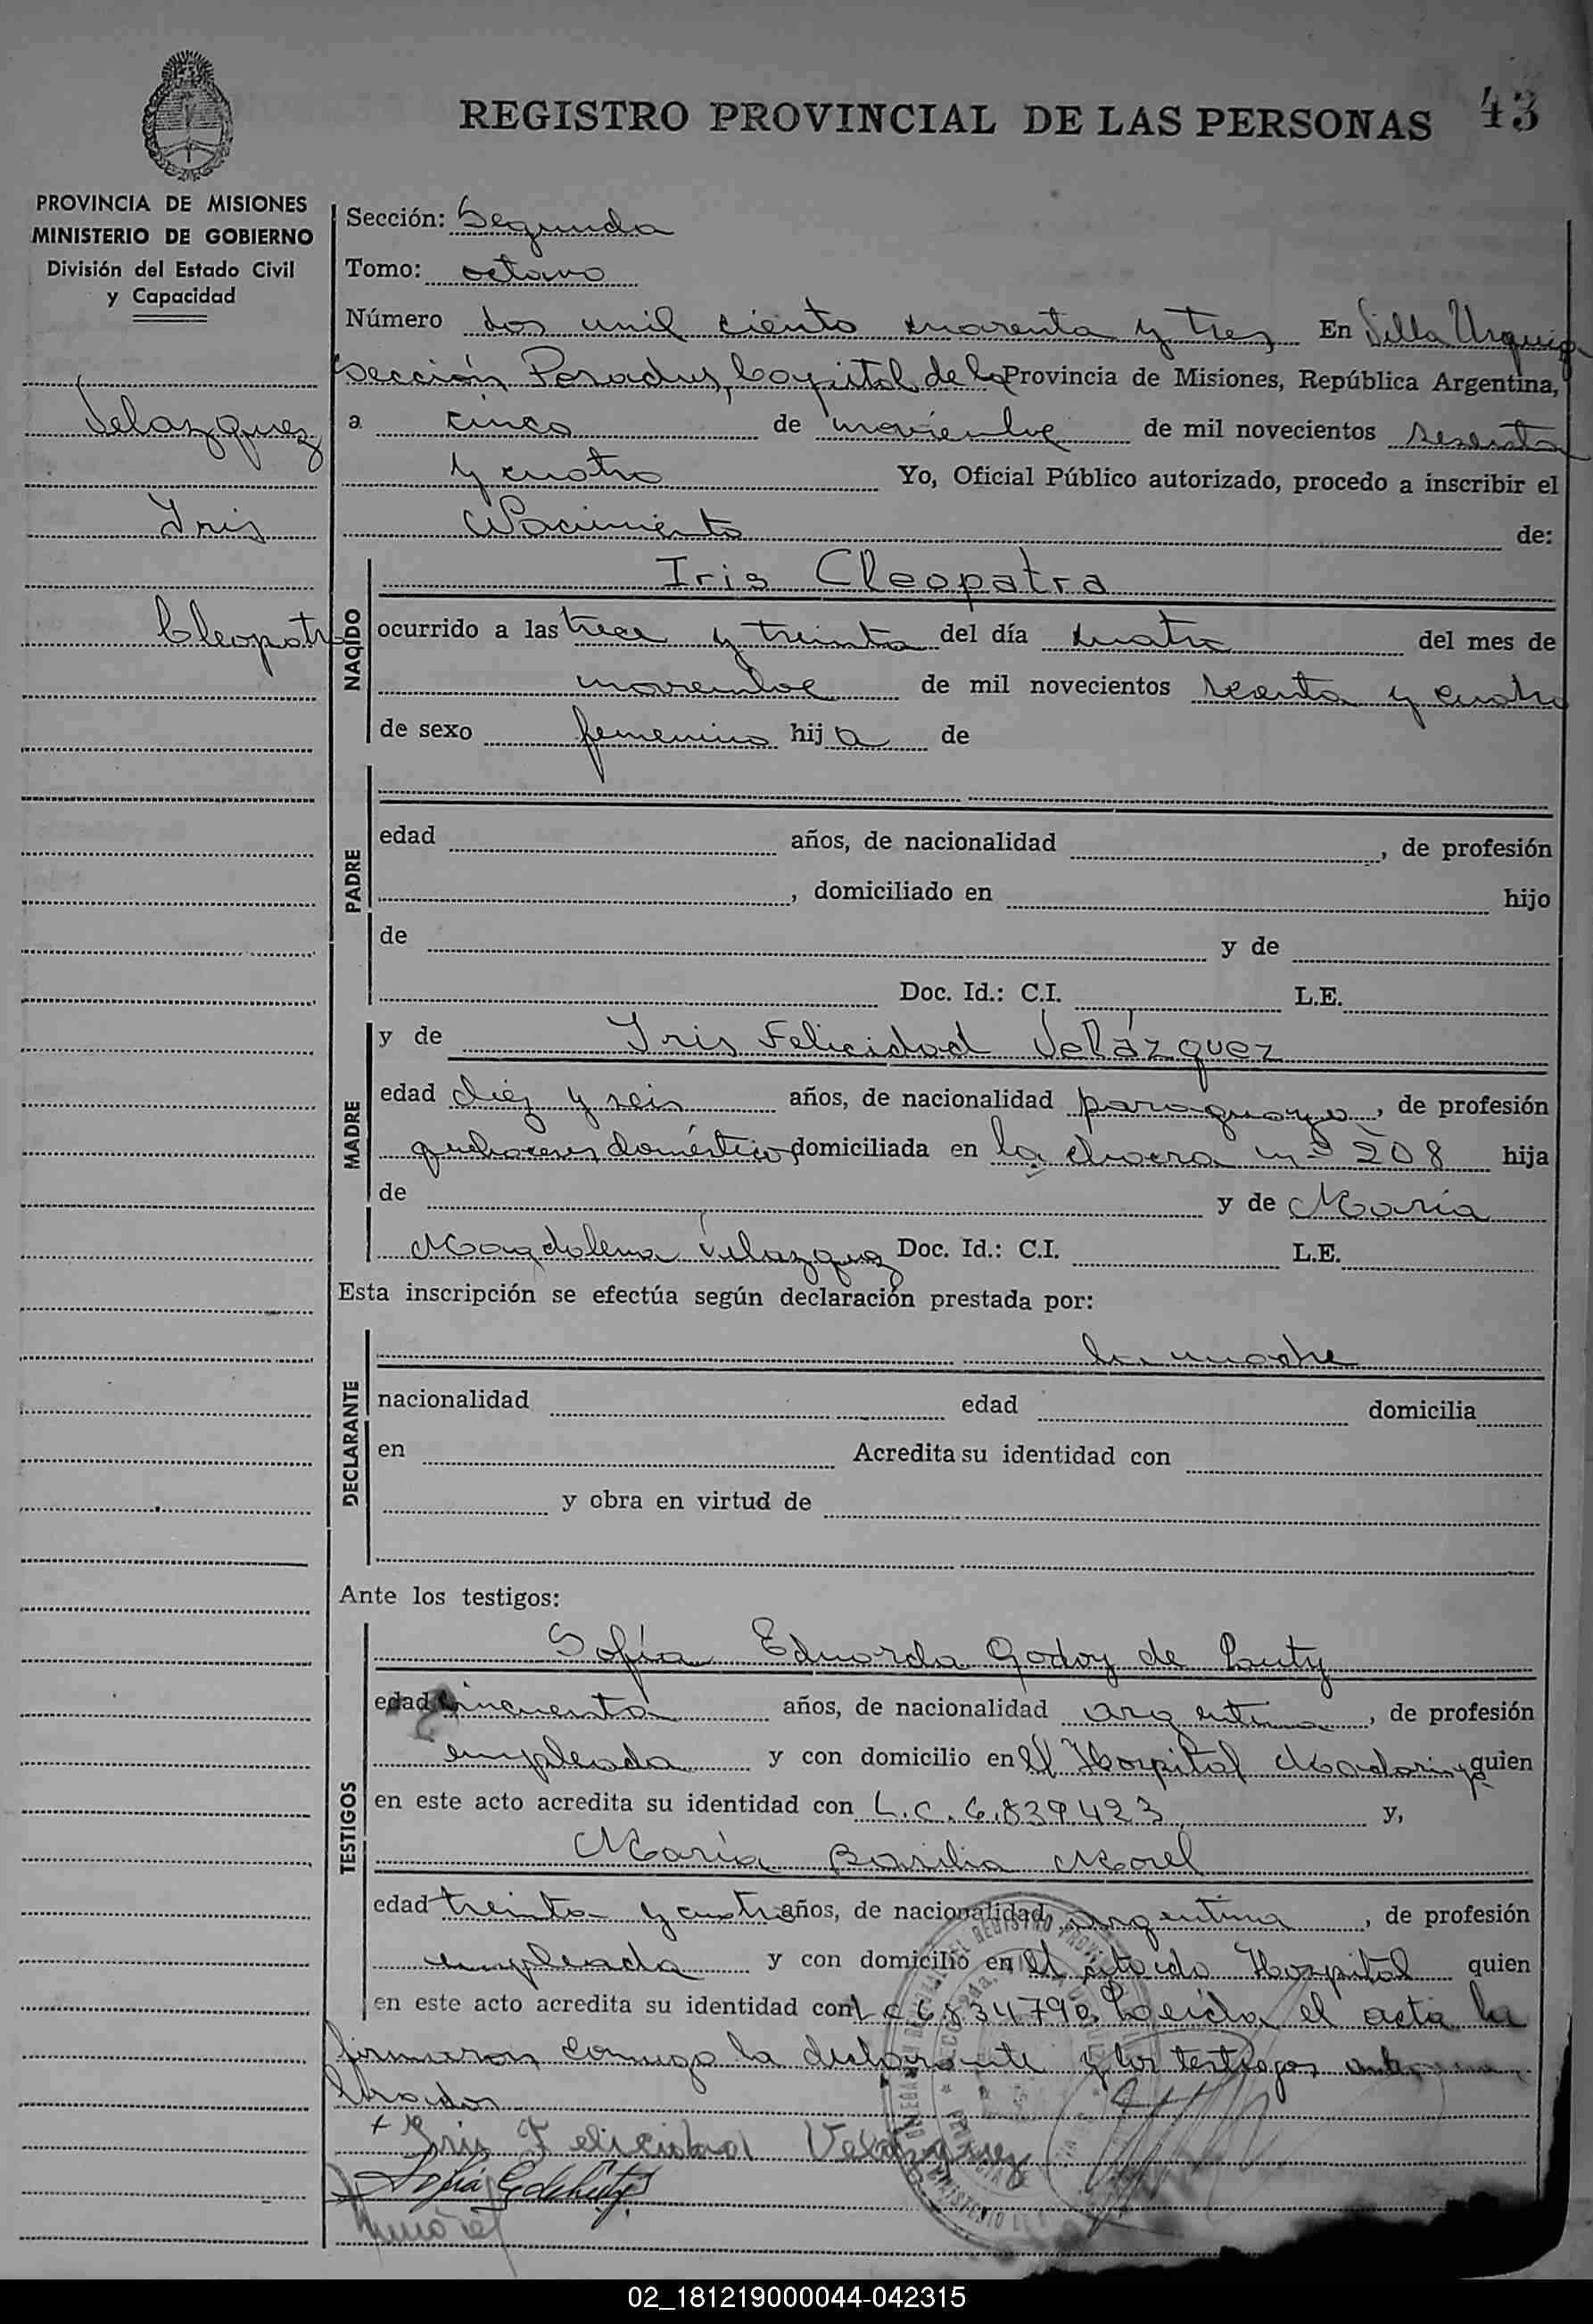 43
REGISTRO PROVINCIAL DE LAS PERSONAS
PROVINCIA DE MISIONES
MINISTERIO DE GOBIERNO
División del Estado Civil
y Capacidad
Velazquez
Iris
Cleopatra
Sección: Segunda
Tomo: octavo
Número dos mil ciento cuarenta y tres En Villa Urquiza
Sección Posadas, Capital de la Provincia de Misiones, República Argentina,
a cinco de noviembre de mil novecientos sesenta
y cuatro Yo, Oficial Público autorizado, procedo a inscribir el
Nacimiento de:
NACIDO
Iris Cleopatra
ocurrido a las trece y treinta del día cuatro del mes de
noviembre de mil novecientos sesenta y cuatro
de sexo femenino hija de
PADRE
edad años, de nacionalidad , de profesión
, domiciliado en hijo
de y de
Doc. Id.: C.I. L.E.
MADRE
y de Iris Felicidad Velázquez
edad diez y seis años, de nacionalidad paraguaya, de profesión
quehaceres domésticos domiciliada en la chacra nº 208 hija
de y de María
Magdalena Velazquez Doc. Id.: C.I. L.E.
Esta inscripción se efectúa según declaración prestada por:
DECLARANTE
la madre
nacionalidad edad domicilia
en Acredita su identidad con
y obra en virtud de
Ante los testigos:
TESTIGOS
Sofía Eduarda Godoy de
edad cincuenta años, de nacionalidad argentina, de profesión
empleada y con domicilio en el Hospital Madariaga quien
en este acto acredita su identidad con L.C. 6.839.423 y,
María Basilia Morel
edad treinta y cuatro años, de nacionalidad argentina, de profesión
empleada y con domicilio en el citado Hospital quien
en este acto acredita su identidad con L c 6834790. Leída el acta la
firmaron conmigo la declarante y los testigos
Iris Felicidad Velazquez
Sofía
02_181219000044-042315